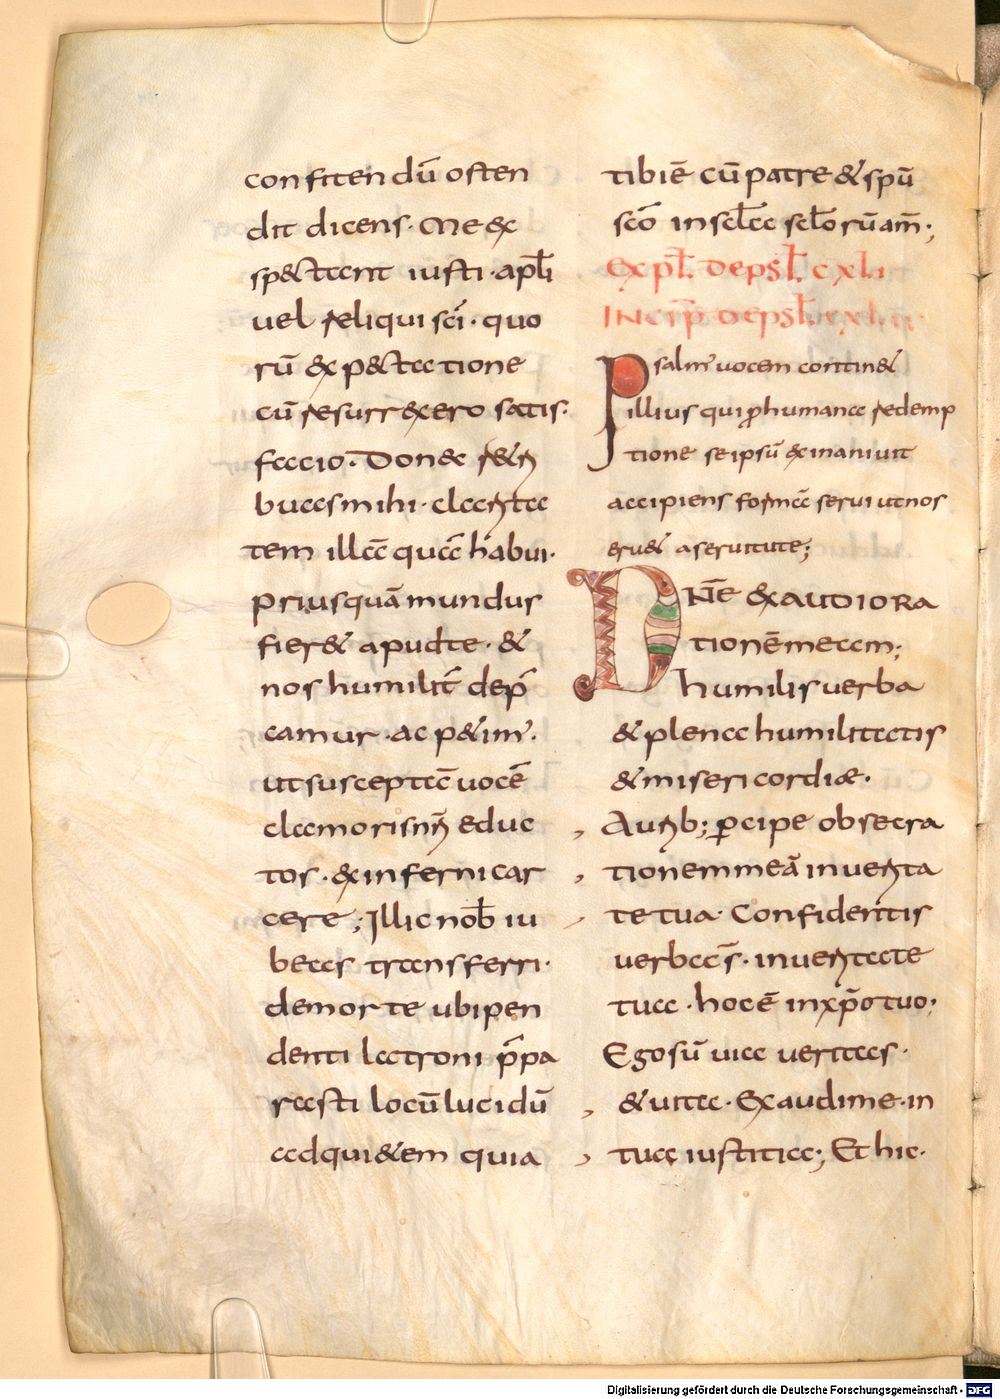 confitendū osten
dit dicens · Me ex
spectant iusti · apłi
uel reliqui sc̄i · quo
rū expectatione
cū resurrexero satis
facio · Donec retri
buas mihi · claritā
tem illā quā habui ·
priusquā mundus
fier& apud te · &
nos humilit̄ dep̄
camur · ac petim̄ ·
ut susceptā uocē
clamoris nr̄i educ
tos · ex inferni car
cere ; Illic nob̄ iu
beas transferri ·
de morte ubi pen
denti latroni p̄pa
rasti locū lucidū
ad quietem quia
tibi ē cū patre & sp̄u
sc̄o in scł̄a scłorū am̄ ;
Expł de psł cxli
Incip̄ de psł cxlii
Psalm̄ uocem contin&
illius qui p humana redemp
tione se ipsū exinaniuit
accipiens formā serui ut nos
eru& a seruitute ;
Dn̄e exaudi ora
tionē meam ;
humilis uerba
& plena humilitatis
& misericordiæ ·
Aurib; pcipe obsecra
tionem meā in uerita
te tua · Confidentis
uerba s̄ · in ueritate
tua · hoc ē in xp̄o tuo ;
Ego sū uia ueritas ·
& uita · Exaudi me · in
tua iustitia ; Et hic ·
Digitalisierung gefördert durch die Deutsche Forschungsgemeinschaft - DFG